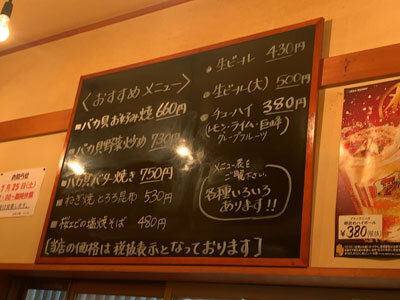 〈おすすめメニュー〉
■バカ貝お好み焼 660円
■バカ貝野菜炒め 730円
■バカ貝バター焼き 750円
■ねぎ焼とろろ昆布 530円
■桜エビの塩焼そば 480円
[当店の価格は税抜表示となっております]
●生ビール 430円
●生ビール(大) 500円
●チューハイ 380円
(レモン・ライム・巨峰
グレープフルーツ)
メニュー表を
ご覧下さい。
各種いろいろ
あります!!
お知らせ
月25日(土)
¥380(税抜)